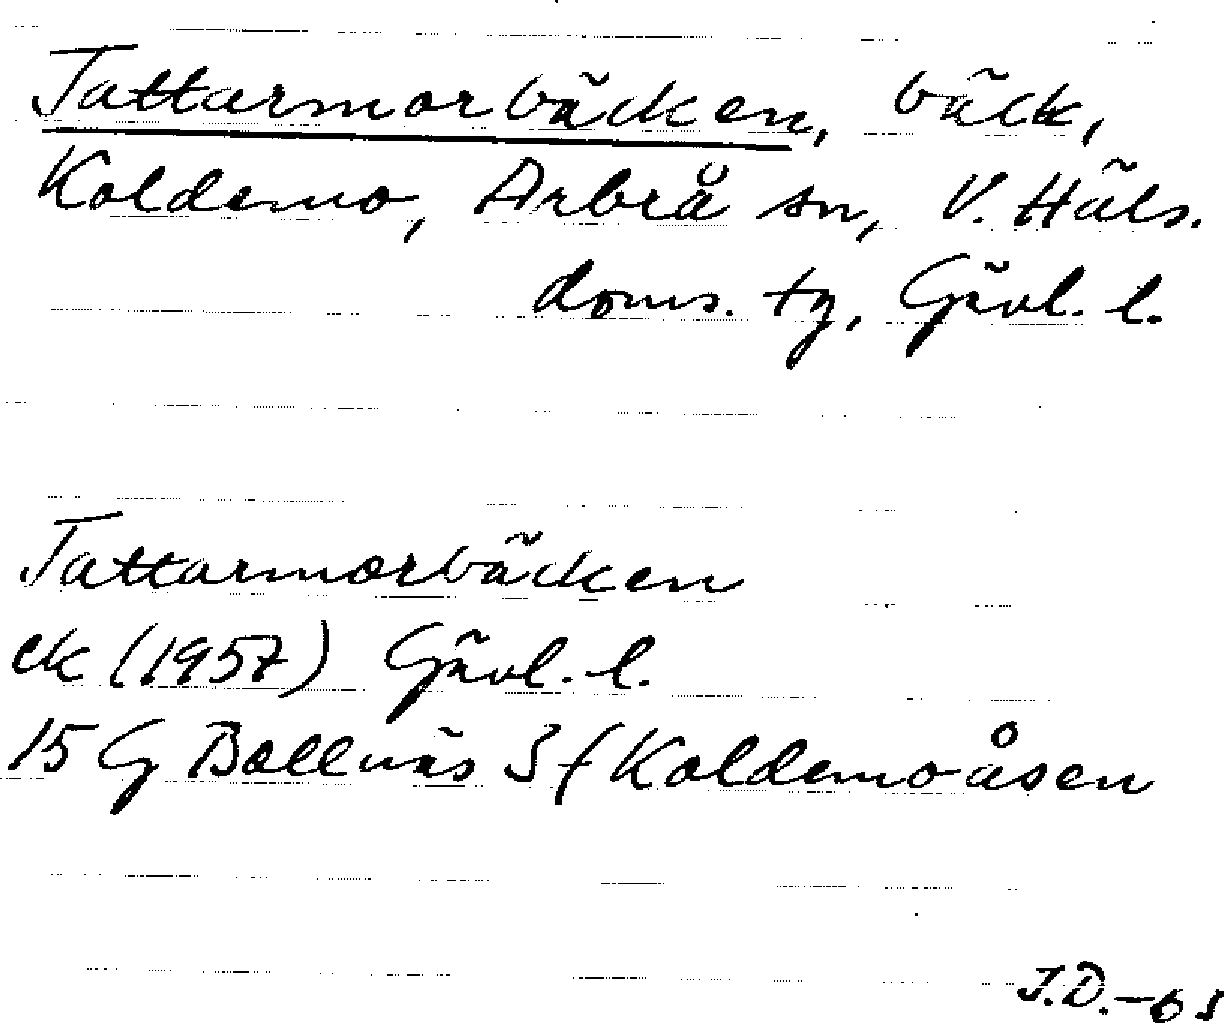 Tattarmorbäcken, bäck,
Koldemo, Arbrå sn, V. Häls.
doms. tg, Gävl. l.
Tattarmorbäcken
ek (1957) Gävl. l.
15 G Bollnäs 3 f Koldemoåsen
J.D.-65